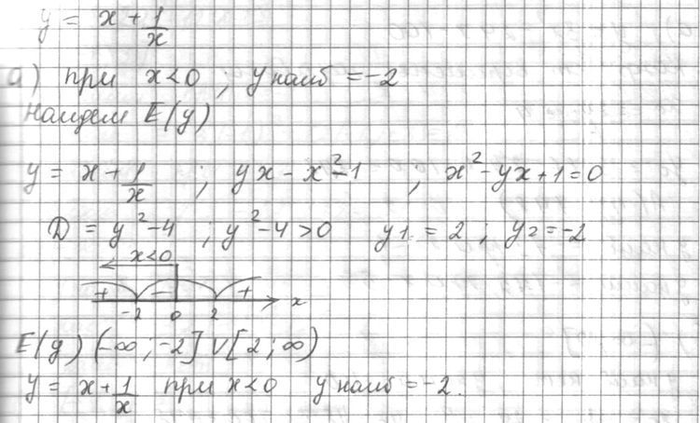 y = x + 1/x
а) при x<0 ; y наиб = -2
Найдем E(y)
y = x + 1/x ; yx - x² - 1 ; x² - yx + 1 = 0
D = y² - 4 ; y² - 4 > 0 y1 = 2 ; y2 = -2
x<0
+ - +
-2 0 2 x
E(y) (-∞ ; -2] ∨ [2 ; ∞)
y = x + 1/x при x<0 y наиб = -2.